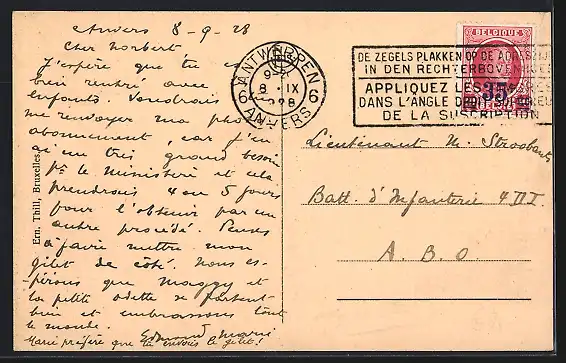 Anvers 8-9-28
Cher Norbert
J'espère que tu es
bien rentré avec
enfants. Voudrais
me renvoyer ma photo
abonnement, car j'en
ai un très grand besoin
pr le ministère et cela
prendrous 4 ou 5 jours
pour l'obtenir par un
autre procédé. Penses
à faire mettre mon
gilet de côté. Nous es-
pérons que Maggy et
la petite Odette se portent
bien et embrassons tout
le monde.
Edmond Marie
Marie préfère que tu envoies le gilet!
Ern. Thill, Bruxelles
ANTWERPEN
8 IX
1928
6 6
ANVERS
DE ZEGELS PLAKKEN OP DE
IN DEN RECHTERBOVEN
APPLIQUEZ LES
DANS L'ANGLE DROIT
DE LA SUSCRIPTION
BELGIQUE
35
Lieutenant N. Stroobants
Batt. d'Infanterie 4 DI
A. B. O.